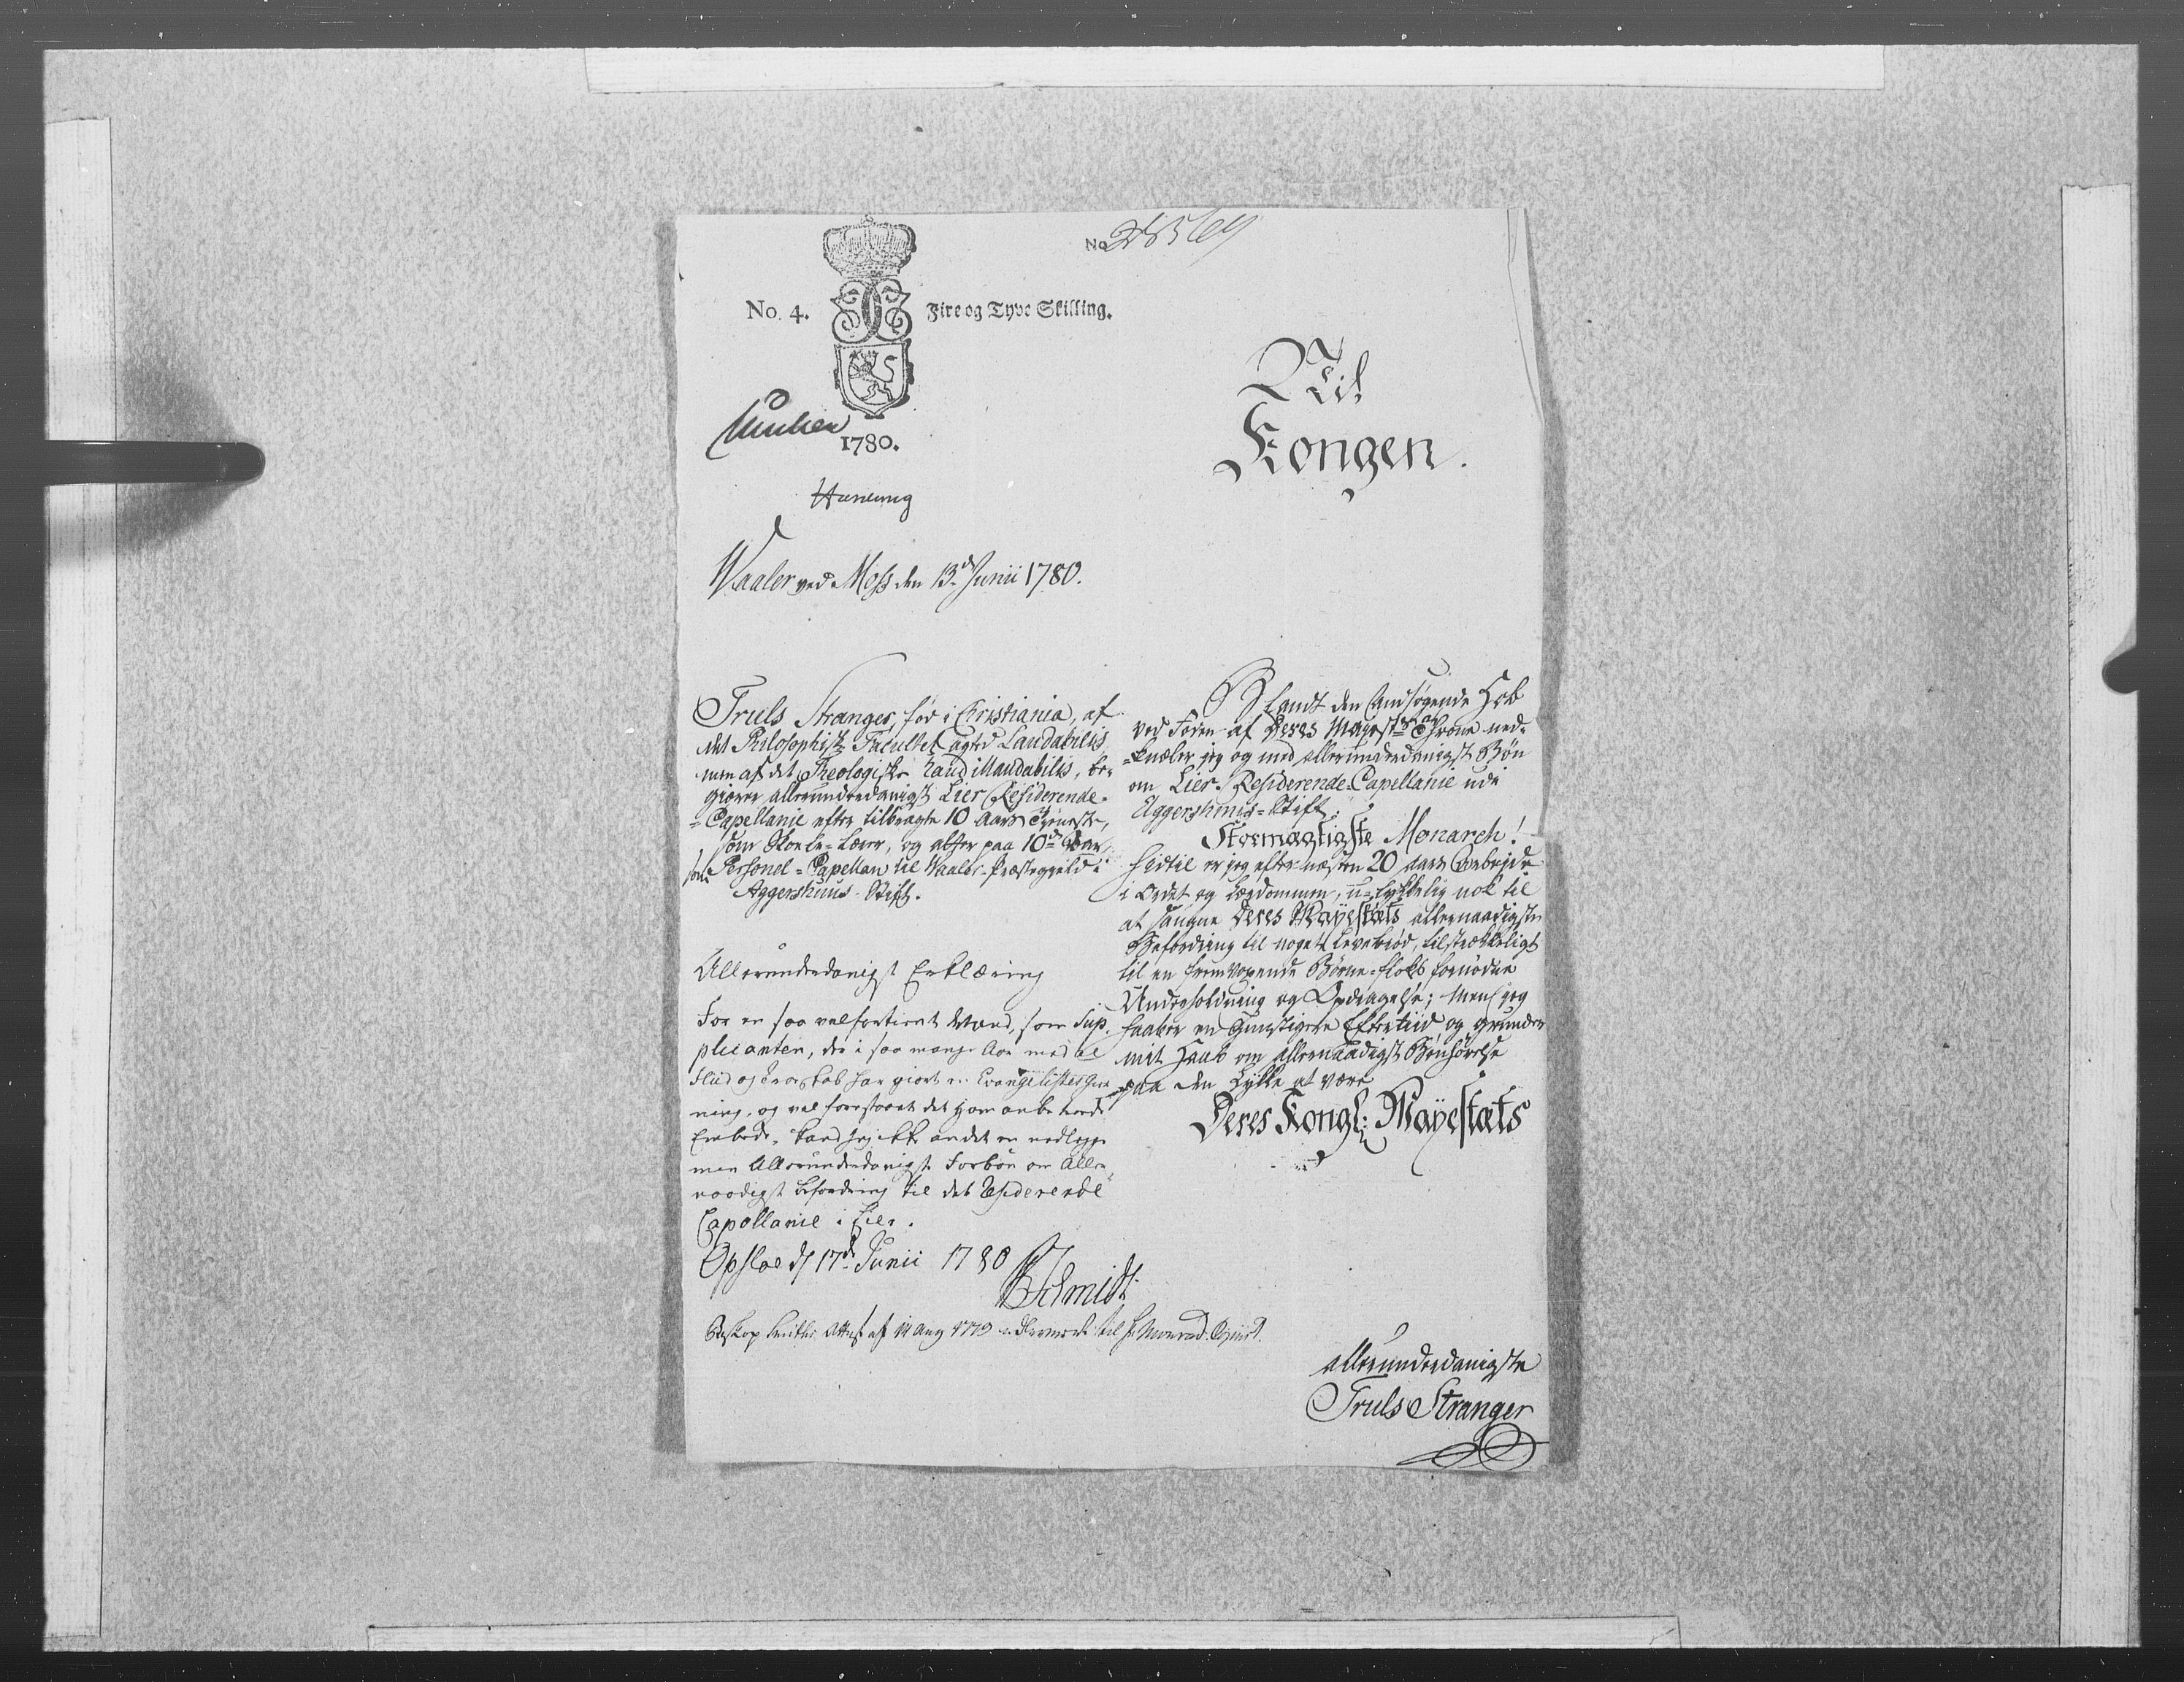 No 28569
No. 4. Fire og Tyve Skilling.
1780.
Til
Kongen.
Waaler ved Moss den 13.de Junii 1780.
Truls Stranger, fød i Christiania, af
det Philosophiske Facultet agted Laudabilis,
men af det Theologiske haud illaudabilis, be-
giærer allerunderdanigst Lier Residerende-
=Capellanie efter tilbragte 10 Aars Tieneste,
som Skole-Lærer, og alt her paa 10de Aar
som Personel=Capellan til Waaler-Præstegield i
Aggershuus-Stift.
Allerunderdanigst Erklæring
For en saa velfortient Mand, som Sup-
plicanten, der i saa mange Aar med al
Fliid og Troeskab har giort en Evangelistes Gier
ning, og vel forestaaet det ham anbetroede
Embede, kand jeg ikke andet en nedlegge
min Allerunderdanigste Forbøn om Aller
naadigst befordring til det Residerende
Capellanie i Lier.
Opsloe d 17de Junii 1780
Schmidt
Biskop Attest af 14 Aug 1779
Blandt den Ansøgende Hob
ved Foden af Deres Mayestæts Throne ned-
=knæler jeg og med allerunderdanigst Bøn
om Lier-Residerende-Capellanie udi
Aggershuus=Stift.
Stormægtigste Monarch!
Hidtil er jeg efter næsten 20 Aars Arbejde
i Ordet og Lærdommen, u-lykkelig nok til
at savne Deres Mayestæts allernaadigste
Befordring til noget Levebrød, tilstrækkeligt
til en fremvoxende Børne-Floks fornødne
Underholdning og Opdragelse; Men jeg
haaber en Gunstigere Eftertiid og grunder
mit Haab om allernaadigst Bønhørelse
paa den Lykke at være
Deres Kongl: Mayestæts
allerunderdanigste
Truls Stranger